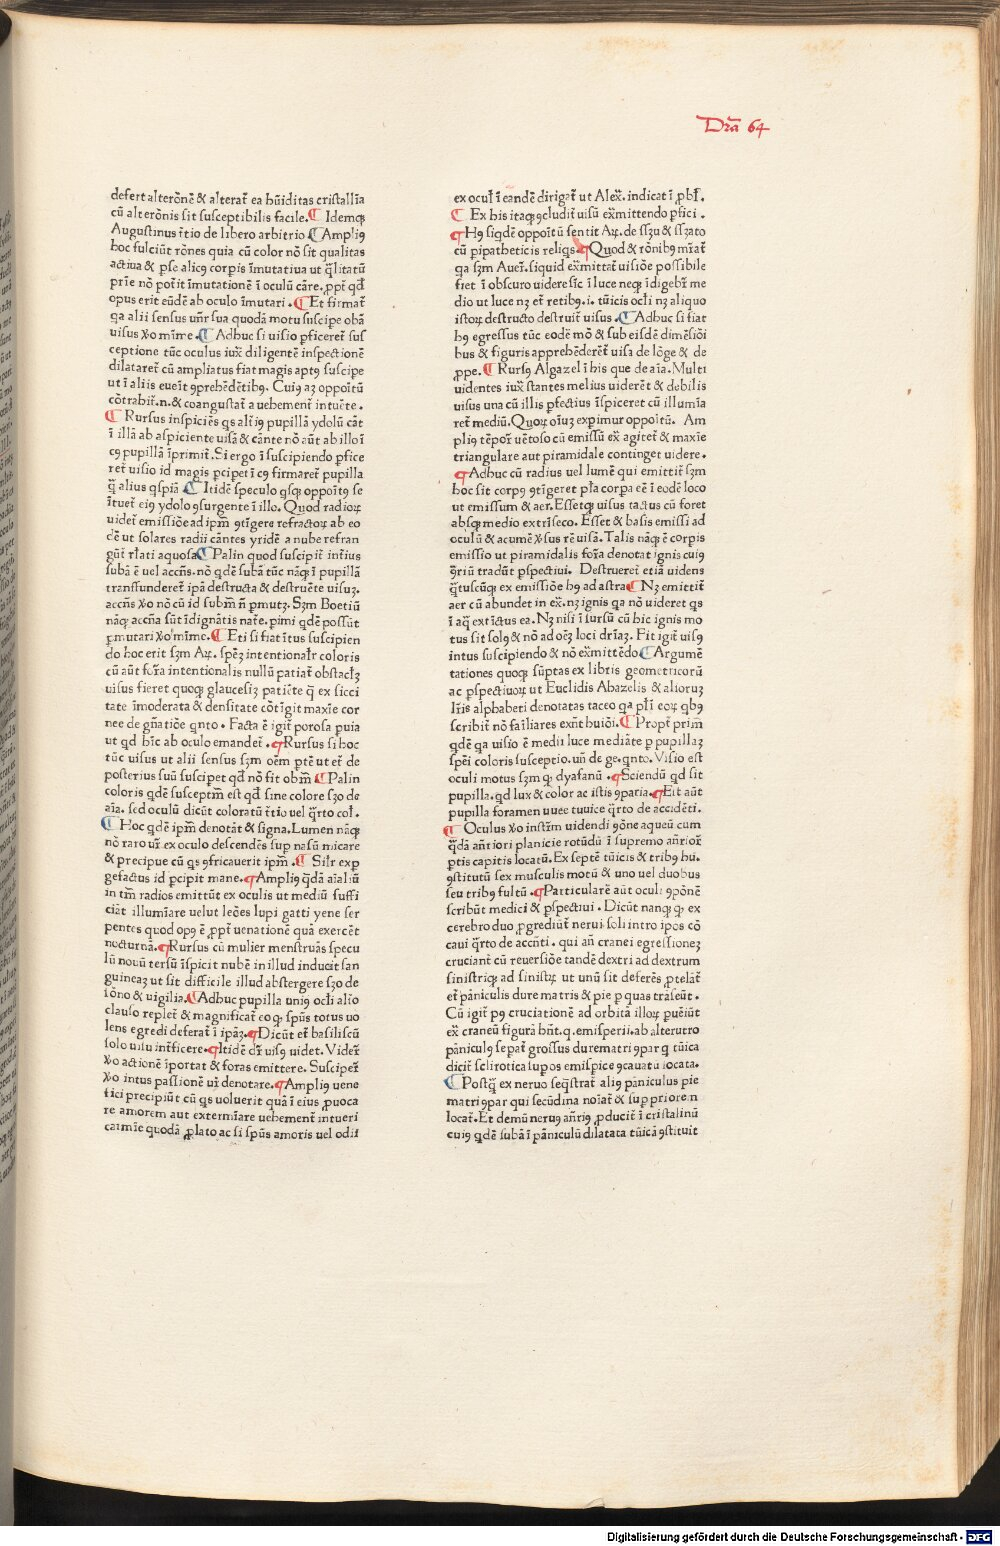 Dr̃a 64
defert alterõnẽ & alterat̃ ea hũiditas cristallĩa
cũ alterõnis sit susceptibilis facile. ¶ Idemꝙ
Augustinus t̃tio de libero arbitrio ¶ Ampliꝰ
hoc fulciũt rõnes quia cũ color nõ sit qualitas
actiua & ꝑse alicꝰ corpis ĩmutatiua ut q̃litatũ
prĩe nõ pot̃it ĩmutationẽ ĩ oculũ cãre. ꝓpt̃ qđ
opus erit eũdẽ ab oculo ĩmutari. ¶ Et firmat̃
qa alii sensus uñr sua quodã motu suscipe obã
uisus ꝟo mĩme. ¶ Adhuc si uisio ꝑficeret̃ sus
ceptione tũc oculus iux̃ diligentẽ inspectionẽ
dilataret̃ cũ ampliatus fiat magis aptꝰ suscipe
ut ĩ aliis eueĩt ꝯprehẽdẽtibꝰ. Cuiꝰ aꝫ oppoĩtũ
cõtrahit̃.n. & coangustat̃ a uehement̃ intuẽte.
¶ Rursus inspiciẽs qs altiꝰ pupillã ydolũ cãt
ĩ illã ab aspiciente uisã & cãnte nõ aũt ab illo ĩ
cꝰ pupillã ĩprimit̃. Si ergo ĩ suscipiendo ꝑfice
ret̃ uisio id magis ꝑcipet ĩ cꝰ firmaret̃ pupilla
q̃ alius qspiã ¶ Itidẽ speculo qsꝙ oppoĩtꝰ se
ĩtuet̃ eiꝰ ydolo ꝯsurgente ĩ illo. Quod radioꝝ
uidet̃ emissiõe ad ipm̃ ꝯtĩgere refractoꝝ ab eo
dẽ ut solares radii cãntes yridẽ a nube refran
gũt̃ rłati aquosa ¶ Palin quod suscipit̃ int̃ius
subã ẽ uel accñs. nõ qdẽ subã tũc nãqꝫ ĩ pupillã
transfunderet̃ ipã destructa & destruẽte uisuꝫ.
accñs ꝟo nõ cũ id subm̃ ñ ꝑmutꝫ. Sꝫm Boetiũ
nãqꝫ accña sũt ĩdignãtis nat̃e. pimi qdẽ possũt
ꝑmutari ꝟo mĩme. ¶ Et i si fiat ĩtus suscipien
do hoc erit sꝫm Aꝝ. spẽꝫ intentionałr coloris
cũ aũt for̃a intentionalis nullũ patiat̃ obstacłꝫ
uisus fieret quoqꝫ glaucesiꝫ patiẽte q̃ ex sicci
tate ĩmoderata & densitate cõtĩgit maxĩe cor
nee de gñatiõe qnto. Facta ẽ igit̃ porosa puia
ut qd hĩc ab oculo emandet̃. ¶ Rursus si hoc
tũc uisus ut alii sensus sꝫm oẽm ꝑtẽ ut et̃ de
posterius suũ suscipet qđ nõ fit obm̃ ¶ Palin
coloris qdẽ susceptm̃ est qđ sine colore sꝫo de
aĩa. sed oculũ dicũt coloratũ t̃tio uel q̃rto col̃.
¶ Hoc qdẽ ipm̃ denotãt & signa. Lumen nãqꝫ
nõ raro ur̃. ex oculo descendẽs suꝑ nasũ micare
& precipue cũ qs ꝯfricauerit ipm̃. ¶ Siłr exꝑ
gefactus id ꝑcipit mane. ¶ Ampliꝰ q̃dã aĩaliũ
in tm̃ radios emittũt ex oculis ut mediũ suffi
ciãt illumĩare uelut leões lupi gatti yene ser
pentes quod opꝰ ẽ ꝓpt̃ uenationẽ quã exercẽt
nocturnã. ¶ Rursus cũ mulier menstruãs specu
lũ nouũ tersũ ĩspicit nubẽ in illud inducit san
guineaꝫ ut sit difficile illud abstergere sꝫo de
sõno & uigilia. ¶ Adhuc pupilla uniꝰ ocłi alĩo
clauso replet̃ & magnificat̃ eo ꝙ sp̃us totus uo
lens egredi deferat̃ ĩ ipãꝫ. ¶ Dicũt et̃ basiliscũ
solo uisu int̃ficere. ¶ Itidẽ dr̃ uisꝰ uidet. Videt̃
ꝟo actionẽ ĩportat & foras emittere. Suscipet̃
ꝟo intus passionẽ ui̇̃ denotare. ¶ Ampliꝰ uene
fici precipiũt cũ qs uoluerit quã ĩ eius ꝓuoca
re amorem aut extermĩare uehement̃ intueri
carmĩe quodã ꝓlato ac si sp̃us amoris uel odii
ex ocuł ĩ eandẽ dirigat̃ ut Alex̃. indicat ĩ ꝓbł.
¶ Ex his itaqꝫ ꝯcludit̃ uisũ ex̃mittendo ꝑfici.
¶ Hꝰ siqdẽ oppoĩtũ sentit Aꝝ. de sꝫu & sꝫato
cũ pipatheticis reliqs ¶ Quod & rõnibꝰ mr̃at̃
qa sꝫm Auer̃. siquid ex̃mittat̃ uisiõe possibile
fiet ĩ obscuro uidere sic̃ ĩ luce neqꝫ ĩdigebit̃ me
dio ut luce nꝫ et̃ retibꝰ .i. tũicis ocłi nꝫ aliquo
istoꝝ destructo destruit̃ uisus. ¶ Adhuc si fiat
hꝰ egressus tũc eodẽ mõ & sub eisdẽ dimẽsiõi
bus & figuris apprehẽderet̃ uisa de lõge & de
ꝓpe. ¶ Rursꝰ Algazel ĩ his que de aĩa. Multi
uidentes iux̃ stantes melius uiderẽt & debilis
uisus una cũ illis ꝑfectius ĩspiceret cũ illumĩa
ret̃ mediũ. Quoꝝ oĩuꝫ exꝑimur oppoĩtũ. Am
pliꝰ tẽpor̃ uẽtoso cũ emissũ ex̃ agitet̃ & maxĩe
triangulare aut piramidale continget uidere.
¶ Adhuc cũ radius uel lumẽ qui emittit̃ sꝫm
hoc sit corpꝰ ꝯtĩgeret pła corpa eẽ ĩ eodẽ loco
ut emissum & aer. Essetqꝫ uisus tactus cũ foret
absqꝫ medio extrĩseco. Esset & basis emissi ad
oculũ & acumẽ ꝟsus rẽ uisã. Talis nãqꝫ ẽ corpis
emissio ut piramidalis for̃a denotat ignis cuiꝰ
ꝯ̃riũ tradũt ꝑspectiui. Destrueret̃ etiã uidens
q̃tuscũqꝫ ex emissiõe hꝰ ad astra ¶ Nꝫ emittit̃
aer cũ abundet in ex̃. nꝫ ignis qa nõ uideret qs
ĩ aq̃ ext̃ictus ea. Nꝫ nisi ĩ sursũ cũ hic ignis mo
tus sit solꝰ & nõ ad oẽꝫ loci dr̃iaꝫ. Fit igit̃ uisꝰ
intus suscipiendo & nõ ex̃mittẽdo ¶ Argumẽ
tationes quoqꝫ sũptas ex libris geometricorũ
ac ꝑspectiuoꝝ ut Euclidis Abazelis & alioruꝫ
lr̃is alphabeti denotatas taceo qa płi eoꝝ qbꝰ
scribit̃ nõ fañliares exñt huiõi. ¶ Propt̃ prim̃
qdẽ qa uisio ẽ medii luce mediãte ꝑ pupillaꝫ
spẽi coloris susceptio. uñ de ge. qnto. Visio est
oculi motus sꝫm ꝙ dyafanũ. ¶ Sciendũ qđ sit
pupilla. qđ lux & color ac istis ꝯparia. ¶ Est aũt
pupilla foramen uuee tuuice q̃rto de accidẽti.
¶ Oculus ꝟo instr̃m uidendi ꝯõne aqueũ cum
q̃dã añriori planicie rotũdũ ĩ supremo añrior̃
ꝑtis capitis locatũ. Ex septẽ tũicis & tribꝰ hu.
ꝯstitutũ sex musculis motũ & uno uel duobus
seu tribꝰ fultũ. ¶ Particularẽ aũt oculi ꝯpõnẽ
scribũt medici & ꝑspectiui. Dicũt nanqꝫ ꝙ ex
cerebro duo ꝓgrediũt̃ nerui soli intro ipos cõ
caui q̃rto de accñti. qui añ cranei egressioneꝫ
cruciant̃ cũ reuersiõe tandẽ dextri ad dextrum
sinistriqꝫ ad sinistꝝ ut unũ sit deferẽs ꝓtelat̃
et̃ pãniculis dure matris & pie ꝑ quas trãseũt.
Cũ igit̃ pꝰ cruciationẽ ad orbitã illoꝝ puẽiũt
ex̃ craneũ figurã hñt. q. emisperii. ab alterutro
pãniculꝰ sepat̃ grossus durematri ꝯpar q tũica
dicit̃ sclirotica lupos emispice ꝯcauatu locata.
¶ Postq̃ ex neruo seq̃strat̃ aliꝰ pãniculus pie
matri ꝯpar qui secũdina noĩat̃ & suꝑ priore n
locat̃. Et demũ neruꝰ añriꝰ ꝓducit̃ ĩ cristalinũ
cuiꝰ qdẽ subã ĩ pãniculũ dilatata tũicã ꝯstituit
Digitalisierung gefördert durch die Deutsche Forschungsgemeinschaft - DFG